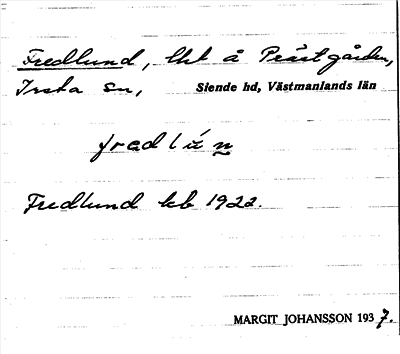 Fredlund, lht å Prästgården,
Irsta sn, Siende hd, Västmanlands län
Fredlund kb 1922.
MARGIT JOHANSSON 1937.